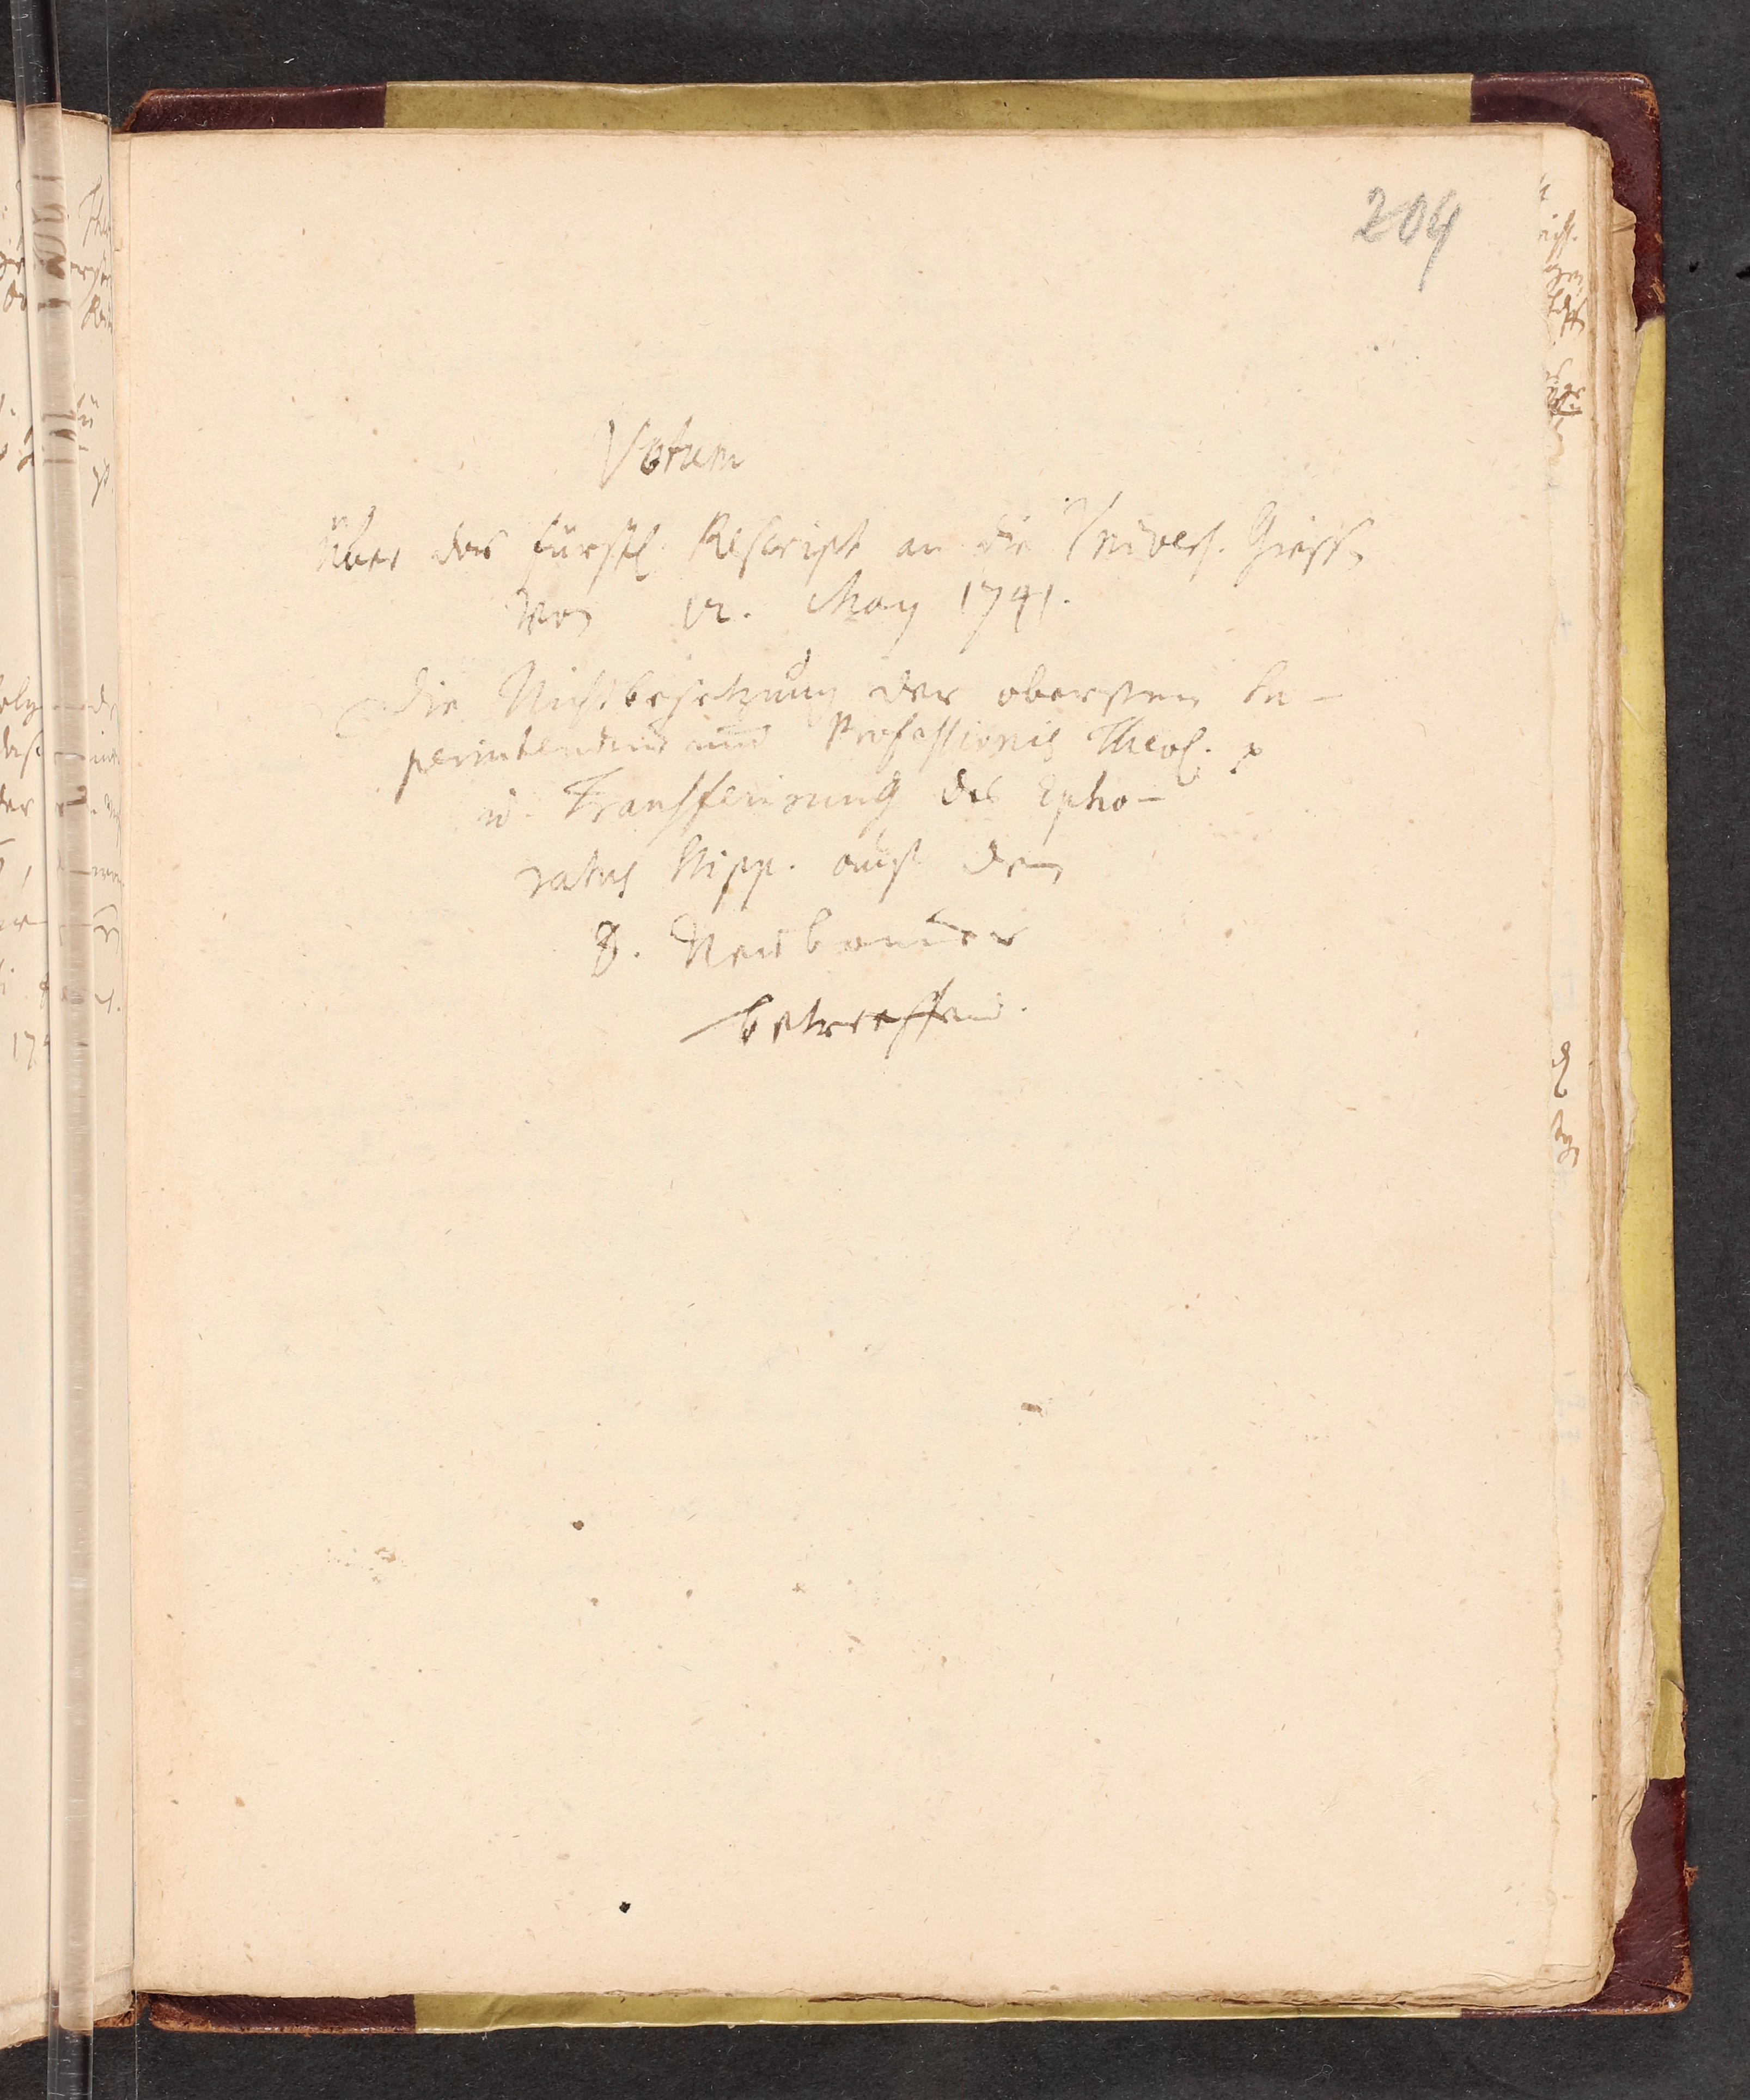 204
Votum
über das fürstl. Rescript an die Univers. Giess.
von 12. May 1741.
die Nichtbesetzung der obersten Su-
perintendur und Professionis Theol.
u. Transferirung des Epho-
ratus Stipp. auf den
D. Neubauer
betreffend.